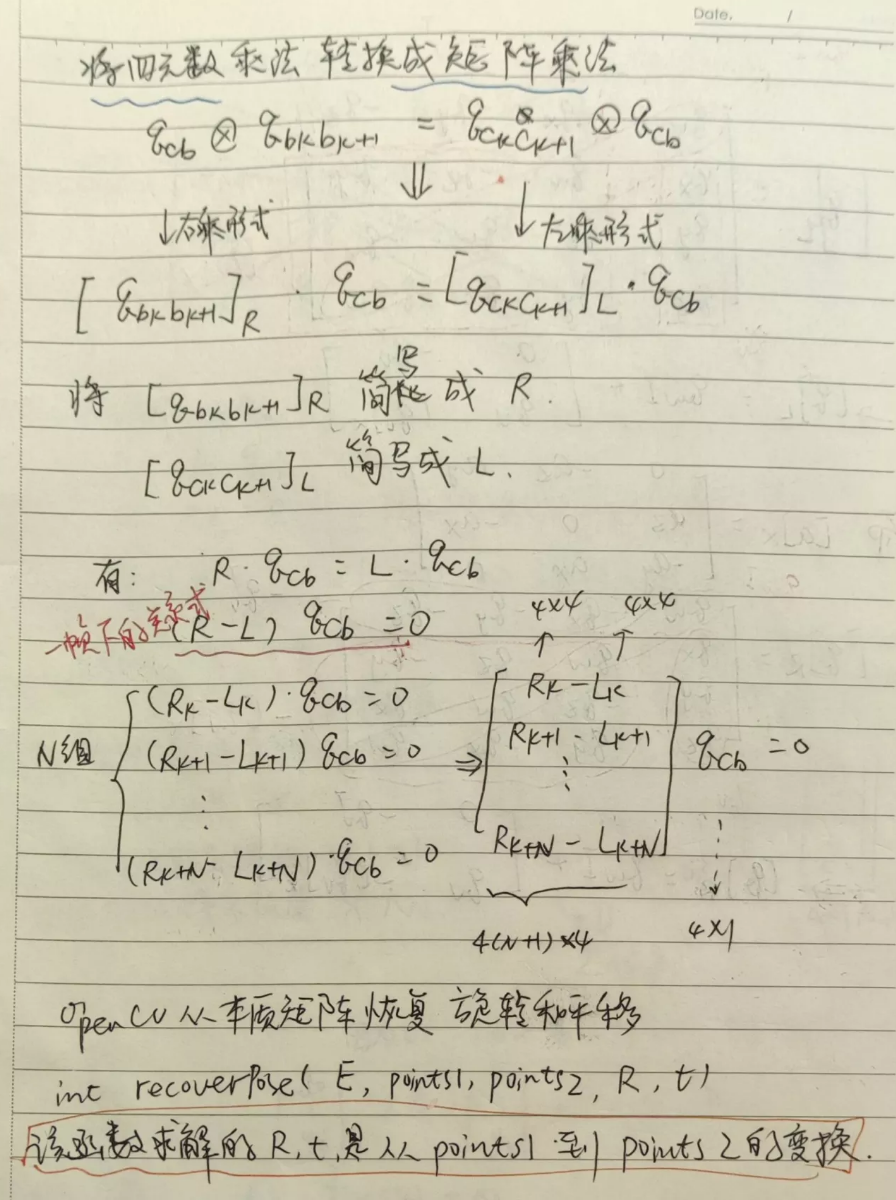 Date. /
将四元数乘法转换成矩阵乘法
q_cb ⊗ q_bkbk+1 = q_ckck+1 ⊗ q_cb
⇓
↓右乘形式 ↓左乘形式
[q_bkbk+1]_R · q_cb = [q_ckck+1]_L · q_cb
将 [q_bkbk+1]_R 简写成 R.
[q_ckck+1]_L 简写成 L.
有: R · q_cb = L · q_cb
一帧下的关系式 (R-L) q_cb = 0
4×4 4×4
↑ ↑
N组
(Rk-Lk)·q_cb = 0
(Rk+1-Lk+1) q_cb = 0
⋮
(Rk+N-Lk+N)·q_cb = 0
⇒
Rk-Lk
Rk+1-Lk+1
⋮
Rk+N-Lk+N
q_cb = 0
4(N+1)×4 4×1
openCV 从本质矩阵恢复旋转和平移
int recoverPose(E, points1, points2, R, t)
该函数求解的R,t,是从points1到points2的变换.